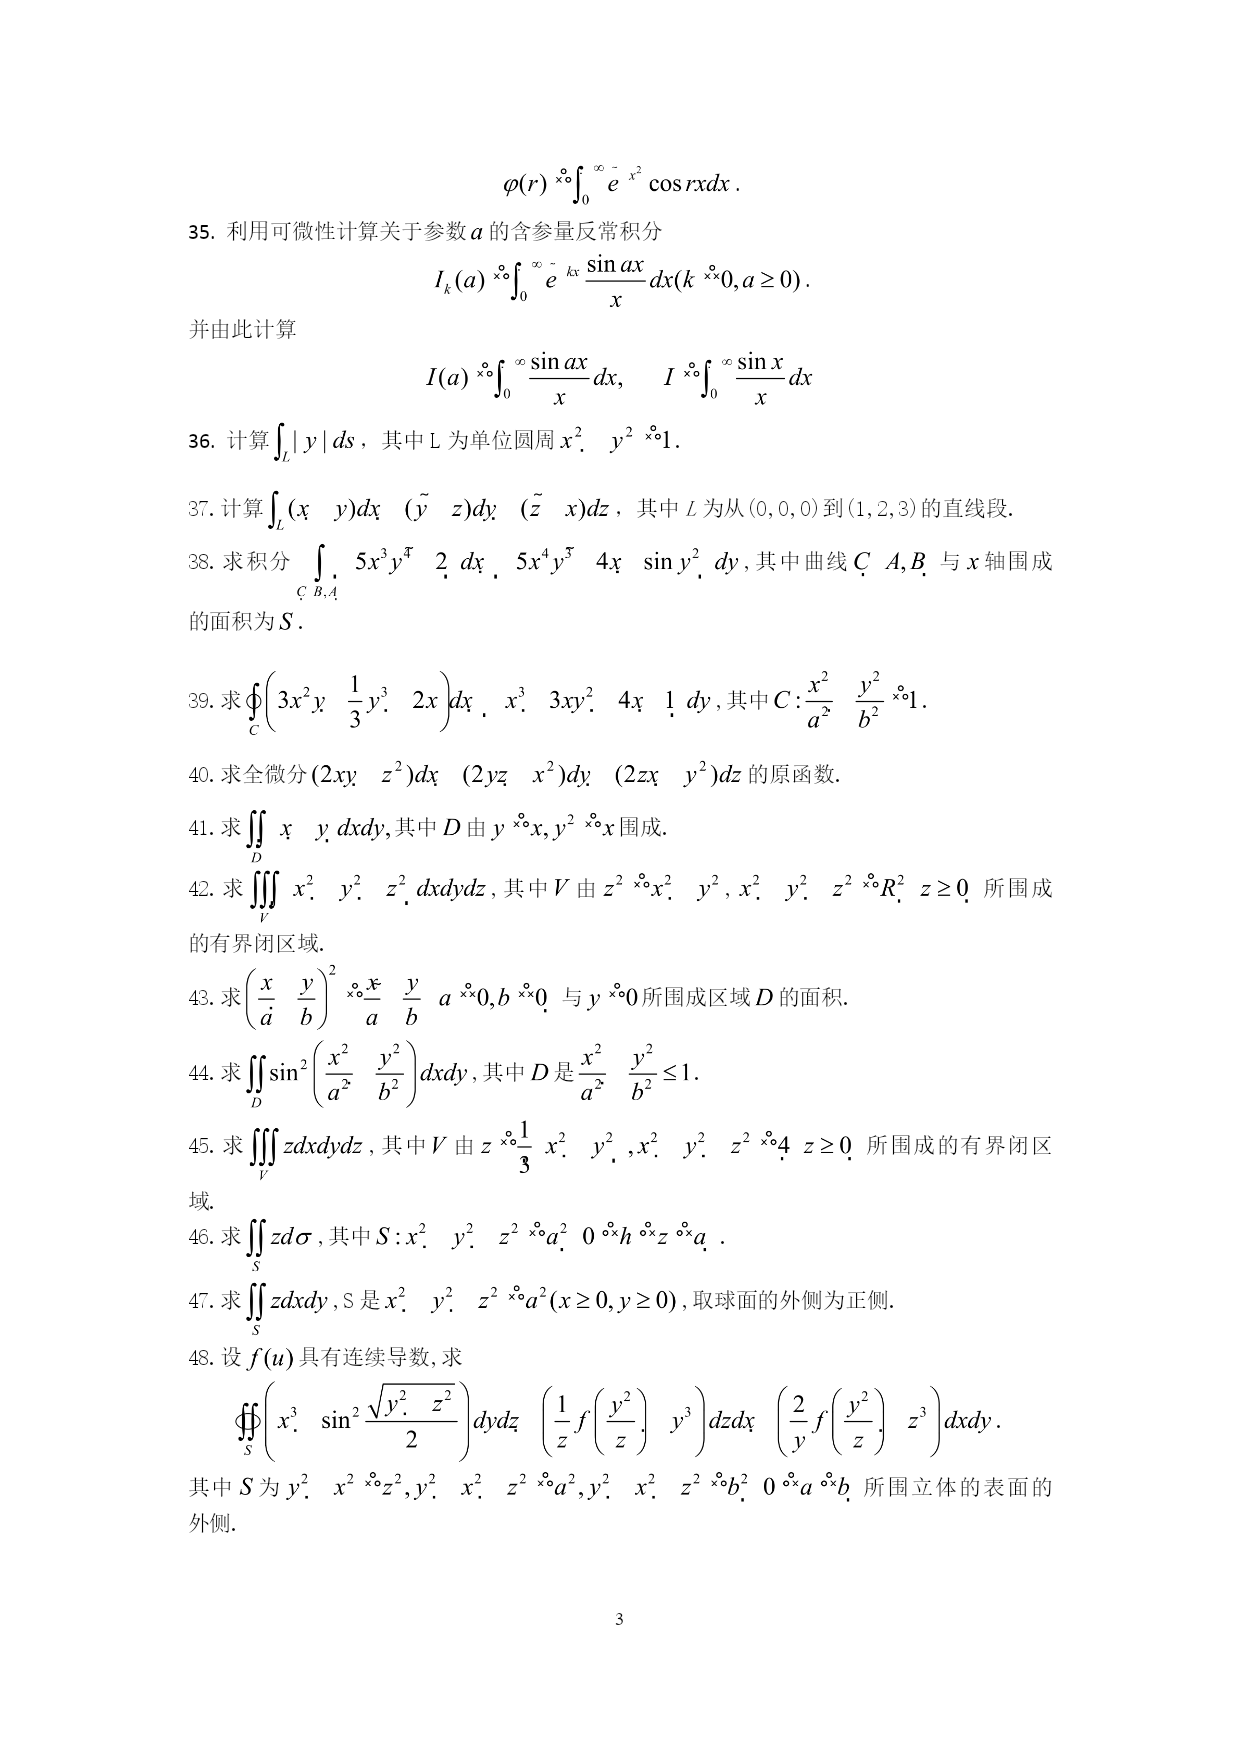 φ(r) = ∫₀^∞ e^{-x²} cos rxdx .
35. 利用可微性计算关于参数 a 的含参量反常积分
I_k(a) = ∫₀^∞ e^{-kx} (sin ax)/x dx(k > 0, a ≥ 0) .
并由此计算
I(a) = ∫₀^∞ (sin ax)/x dx, I = ∫₀^∞ (sin x)/x dx
36. 计算∫_L | y | ds ，其中 L 为单位圆周 x² y² = 1.
37. 计算∫_L (x y)dx (y z)dy (z x)dz ，其中 L 为从(0,0,0)到(1,2,3)的直线段.
38. 求积分 ∫_{C B,A} 5x³y⁴ 2 dx 5x⁴y³ 4x sin y² dy ,其中曲线 C A, B 与 x 轴围成
的面积为 S .
39. 求∮_C (3x²y 1/3 y³ 2x)dx x³ 3xy² 4x 1 dy ,其中 C : x²/a² y²/b² = 1.
40. 求全微分(2xy z²)dx (2yz x²)dy (2zx y²)dz 的原函数.
41. 求∬_D x y dxdy,其中 D 由 y = x, y² = x 围成.
42. 求∭_V x² y² z² dxdydz ,其中 V 由 z² = x² y² , x² y² z² = R² z ≥ 0 所围成
的有界闭区域.
43. 求(x/a y/b)² = x/a y/b a > 0, b > 0 与 y = 0 所围成区域 D 的面积.
44. 求∬_D sin²(x²/a² y²/b²)dxdy ,其中 D 是 x²/a² y²/b² ≤ 1.
45. 求∭_V zdxdydz ,其中 V 由 z = 1/3 x² y² , x² y² z² = 4 z ≥ 0 所围成的有界闭区
域.
46. 求∬_S zdσ ,其中 S : x² y² z² = a² 0 < h < z < a .
47. 求∬_S zdxdy ,S 是 x² y² z² = a² (x ≥ 0, y ≥ 0) ,取球面的外侧为正侧.
48. 设 f (u) 具有连续导数,求
∯_S (x³ sin² √(y² z²)/2)dydz (1/z f(y²/z) y³)dzdx (2/y f(y²/z) z³)dxdy .
其中 S 为 y² x² = z² , y² x² z² = a² , y² x² z² = b² 0 < a < b 所围立体的表面的
外侧.
3